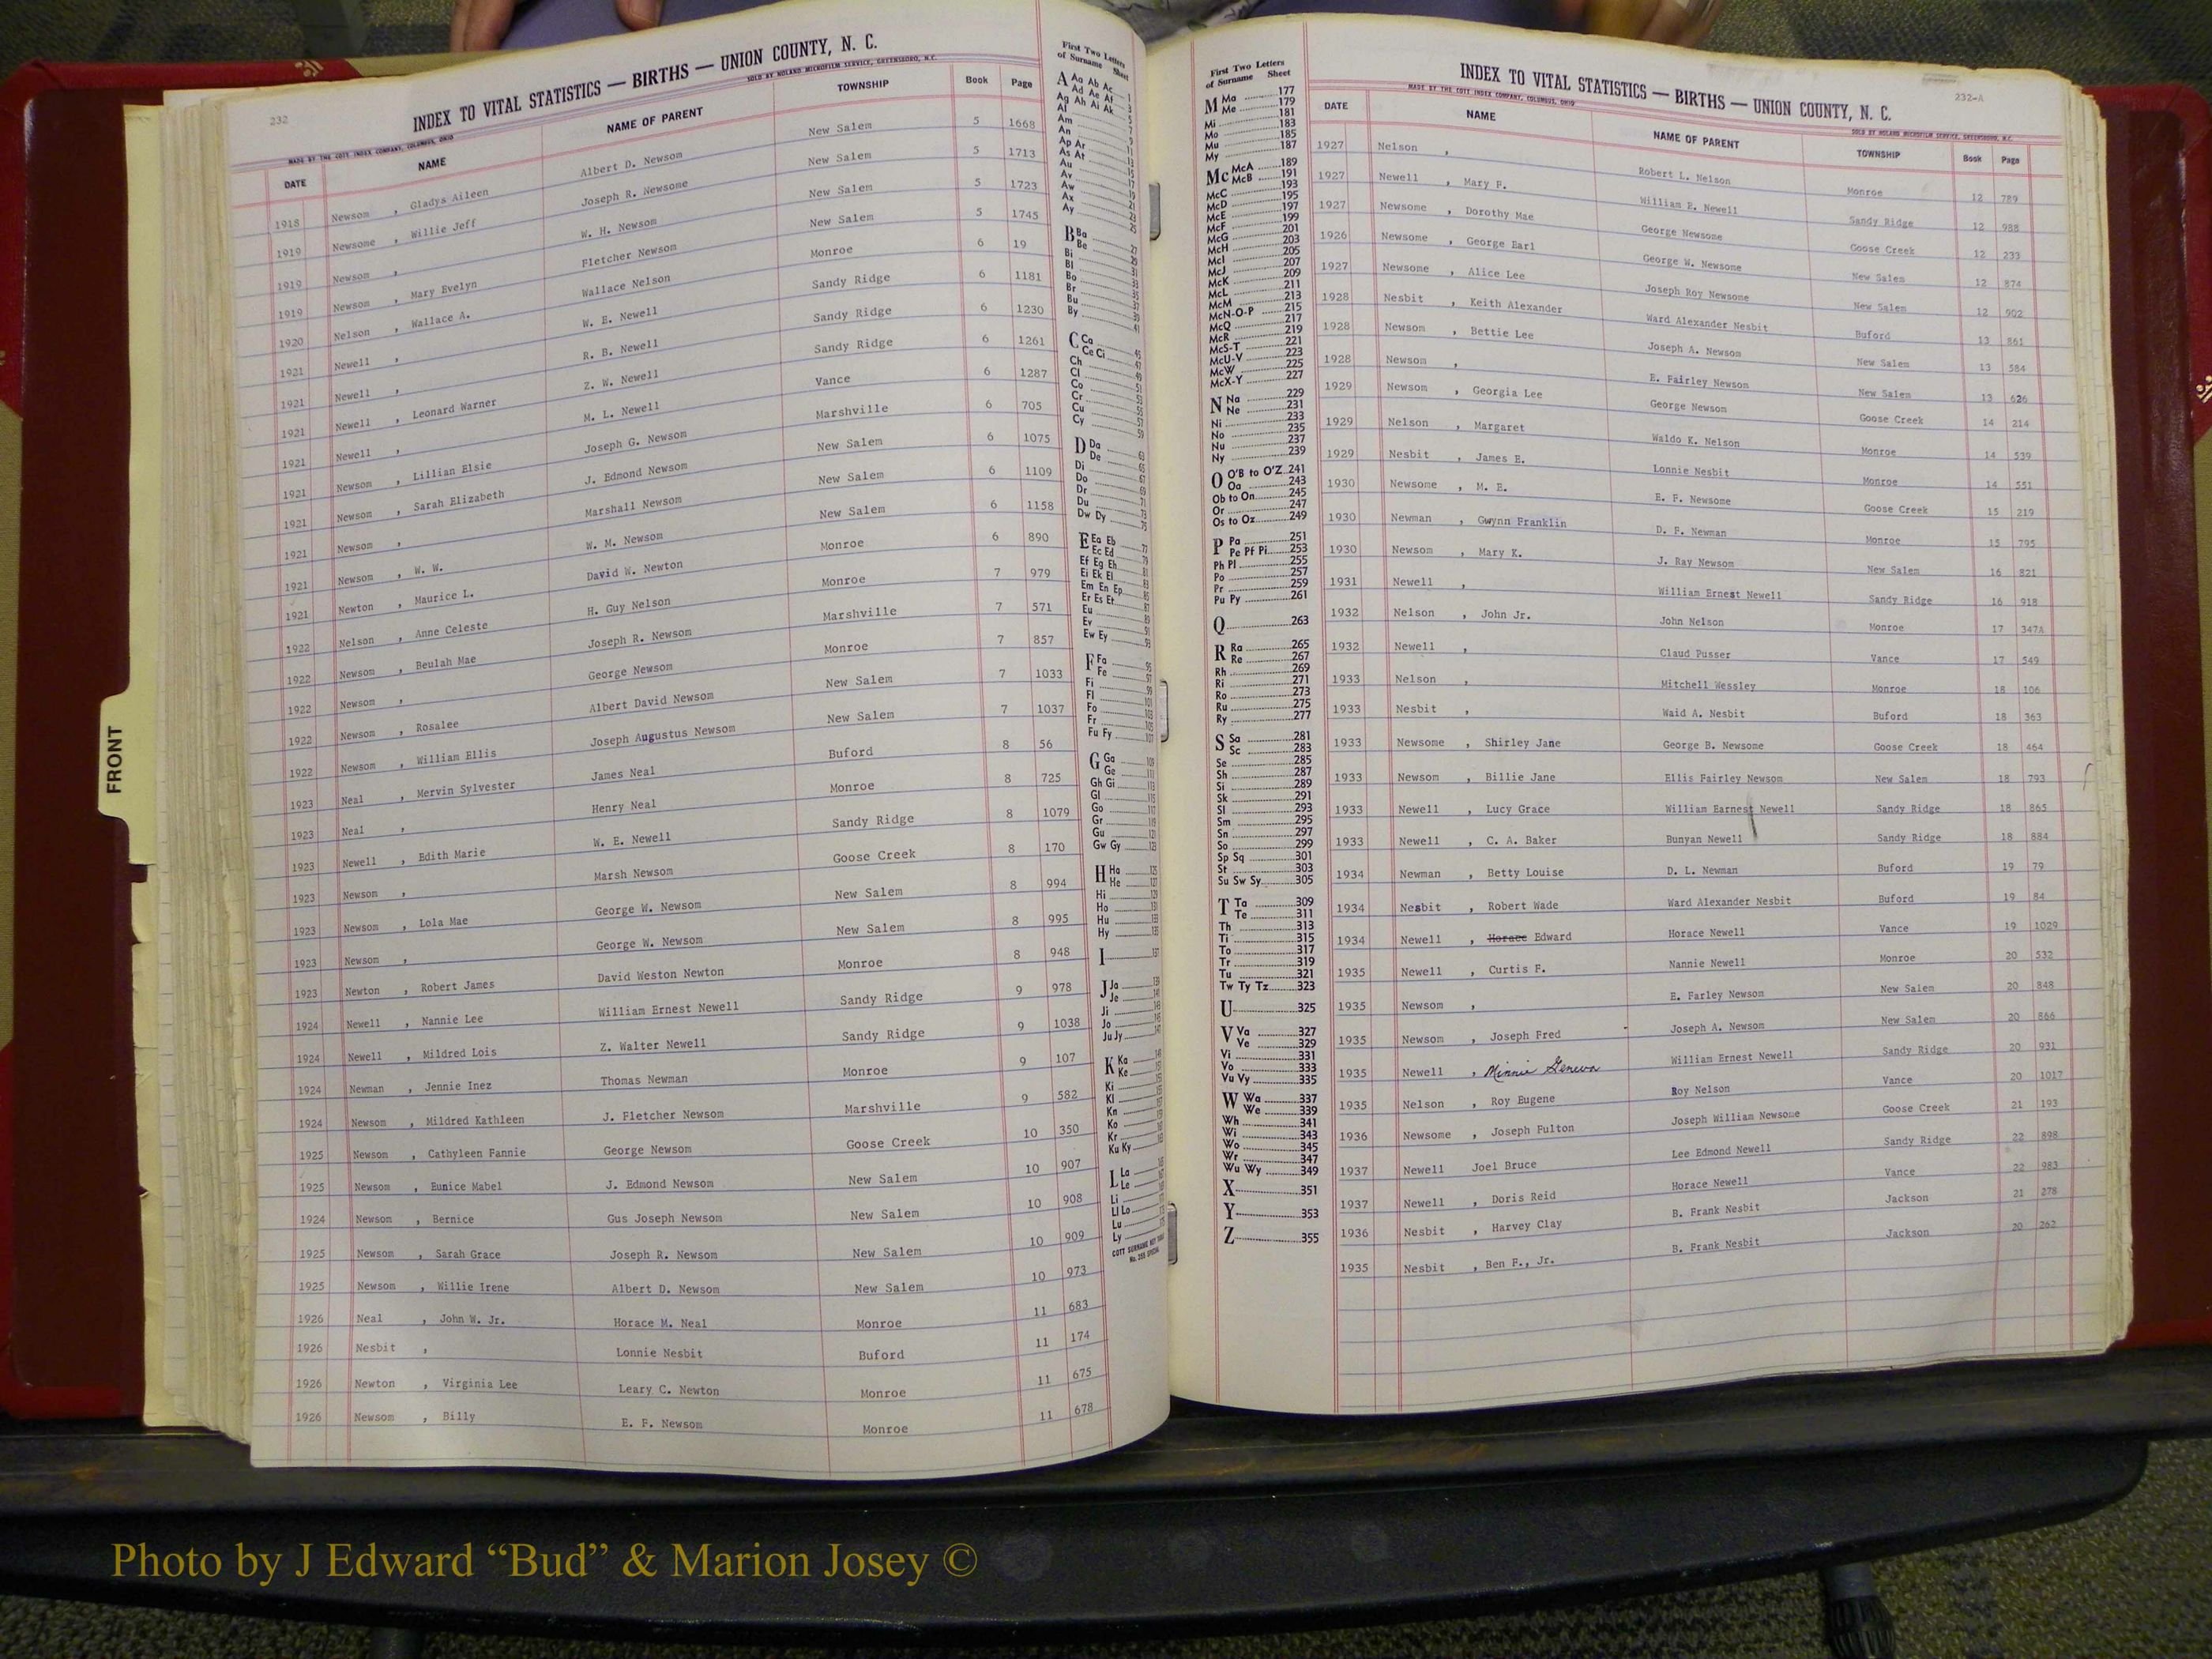 232
INDEX TO VITAL STATISTICS — BIRTHS — UNION COUNTY, N. C.
MADE BY THE COTT INDEX COMPANY, COLUMBUS, OHIO SOLD BY NOLAND MICROFILM SERVICE, GREENSBORO, N.C.
DATE NAME NAME OF PARENT TOWNSHIP Book Page
1918 Newsom , Gladys Aileen Albert D. Newsom New Salem 5 1668
1919 Newsome , Willie Jeff Joseph R. Newsome New Salem 5 1713
1919 Newsom , W. H. Newsom New Salem 5 1723
1919 Newsom , Mary Evelyn Fletcher Newsom New Salem 5 1745
1920 Nelson , Wallace A. Wallace Nelson Monroe 6 19
1921 Newell , W. E. Newell Sandy Ridge 6 1181
1921 Newell , R. B. Newell Sandy Ridge 6 1230
1921 Newell , Leonard Warner Z. W. Newell Sandy Ridge 6 1261
1921 Newell , M. L. Newell Vance 6 1287
1921 Newsom , Lillian Elsie Joseph G. Newsom Marshville 6 705
1921 Newsom , Sarah Elizabeth J. Edmond Newsom New Salem 6 1075
1921 Newsom , Marshall Newsom New Salem 6 1109
Newsom , W. W. W. M. Newsom New Salem 6 1158
1921 Newton , Maurice L. David W. Newton Monroe 6 890
1922 Nelson , Anne Celeste H. Guy Nelson Monroe 7 979
1922 Newsom , Beulah Mae Joseph R. Newsom Marshville 7 571
1922 Newsom , George Newsom Monroe 7 857
1922 Newsom , Rosalee Albert David Newsom New Salem 7 1033
1922 Newsom , William Ellis Joseph Augustus Newsom New Salem 7 1037
1923 Neal , Mervin Sylvester James Neal Buford 8 56
1923 Neal , Henry Neal Monroe 8 725
1923 Newell , Edith Marie W. E. Newell Sandy Ridge 8 1079
1923 Newsom , Marsh Newsom Goose Creek 8 170
1923 Newsom , Lola Mae George W. Newsom New Salem 8 994
1923 Newsom , George W. Newsom New Salem 8 995
1923 Newton , Robert James David Weston Newton Monroe 8 948
1924 Newell , Nannie Lee William Ernest Newell Sandy Ridge 9 978
1924 Newell , Mildred Lois Z. Walter Newell Sandy Ridge 9 1038
1924 Newman , Jennie Inez Thomas Newman Monroe 9 107
1924 Newsom , Mildred Kathleen J. Fletcher Newsom Marshville 9 582
1925 Newsom , Cathyleen Fannie George Newsom Goose Creek 10 350
1925 Newsom , Eunice Mabel J. Edmond Newsom New Salem 10 907
1924 Newsom , Bernice Gus Joseph Newsom New Salem 10 908
1925 Newsom , Sarah Grace Joseph R. Newsom New Salem 10 909
1925 Newsom , Willie Irene Albert D. Newsom New Salem 10 973
1926 Neal , John W. Jr. Horace M. Neal Monroe 11 683
1926 Nesbit , Lonnie Nesbit Buford 11 174
1926 Newton , Virginia Lee Leary C. Newton Monroe 11 675
1926 Newsom , Billy E. F. Newsom Monroe 11 678
First Two Letters
of Surname Sheet
A Aa Ab Ac 1
Ad Ae Af 3
Ag Ah Ai Ak 5
Al 7
Am 9
An 11
Ap Ar 13
As At 15
Au 17
Av 19
Aw 21
Ax 23
Ay 25
B Ba 27
Be 29
Bi 31
Bl 33
Bo 35
Br 37
Bu 39
By 41
C Ca 45
Ce Ci 47
Ch 49
Cl 51
Co 53
Cr 55
Cu 57
Cy 59
D Da 63
De 65
Di 67
Do 69
Dr 71
Du 73
Dw Dy 75
E Ea Eb 77
Ec Ed 79
Ef Eg Eh 81
Ei Ek El 83
Em En Ep 85
Er Es Et 87
Eu 89
Ev 91
Ew Ey 93
F Fa 95
Fe 97
Fi 99
Fl 101
Fo 103
Fr 105
Fu Fy 107
G Ga 109
Ge 111
Gh Gi 113
Gl 115
Go 117
Gr 119
Gu 121
Gw Gy 123
H Ha 125
He 127
Hi 129
Ho 131
Hu 133
Hy 135
I 137
J Ja 139
Je 141
Ji 143
Jo 145
Ju Jy 147
K Ka
Ke
Ki
Kl
Kn
Ko
Kr
Ku Ky
L La
Le
Li
Ll Lo
Lu
Ly
First Two Letters
of Surname Sheet
M Ma 177
Me 179
Mi 181
Mo 183
Mu 185
My 187
Mc McA 189
McB 191
McC 193
McD 195
McE 197
McF 199
McG 201
McH 203
McI 205
McJ 207
McK 209
McL 211
McM 213
McN-O-P 215
McQ 217
McR 219
McS-T 221
McU-V 223
McW 225
McX-Y 227
N Na 229
Ne 231
Ni 233
No 235
Nu 237
Ny 239
O O'B to O'Z 241
Oa 243
Ob to On 245
Or 247
Os to Oz 249
P Pa 251
Pe Pf Pi 253
Ph Pl 255
Po 257
Pr 259
Pu Py 261
Q 263
R Ra 265
Re 267
Rh 269
Ri 271
Ro 273
Ru 275
Ry 277
S Sa 281
Sc 283
Se 285
Sh 287
Si 289
Sk 291
Sl 293
Sm 295
Sn 297
So 299
Sp Sq 301
St 303
Su Sw Sy 305
T Ta 309
Te 311
Th 313
Ti 315
To 317
Tr 319
Tu 321
Tw Ty Tz 323
U 325
V Va 327
Ve 329
Vi 331
Vo 333
Vu Vy 335
W Wa 337
We 339
Wh 341
Wi 343
Wo 345
Wr 347
Wu Wy 349
X 351
Y 353
Z 355
232-A
INDEX TO VITAL STATISTICS — BIRTHS — UNION COUNTY, N. C.
MADE BY THE COTT INDEX COMPANY, COLUMBUS, OHIO SOLD BY NOLAND MICROFILM SERVICE, GREENSBORO, N.C.
DATE NAME NAME OF PARENT TOWNSHIP Book Page
1927 Nelson , Robert L. Nelson Monroe 12 789
1927 Newell , Mary F. William E. Newell Sandy Ridge 12 988
1927 Newsome , Dorothy Mae George Newsome Goose Creek 12 233
1926 Newsome , George Earl George W. Newsome New Salem 12 874
1927 Newsome , Alice Lee Joseph Roy Newsome New Salem 12 902
1928 Nesbit , Keith Alexander Ward Alexander Nesbit Buford 13 861
1928 Newsom , Bettie Lee Joseph A. Newsom New Salem 13 584
1928 Newsom , E. Fairley Newsom New Salem 13 626
1929 Newsom , Georgia Lee George Newsom Goose Creek 14 214
1929 Nelson , Margaret Waldo K. Nelson Monroe 14 539
1929 Nesbit , James E. Lonnie Nesbit Monroe 14 551
1930 Newsome , M. E. E. F. Newsome Goose Creek 15 219
1930 Newman , Gwynn Franklin D. F. Newman Monroe 15 795
1930 Newsom , Mary K. J. Ray Newsom New Salem 16 821
1931 Newell , William Ernest Newell Sandy Ridge 16 918
1932 Nelson , John Jr. John Nelson Monroe 17 347A
1932 Newell , Claud Pusser Vance 17 549
1933 Nelson , Mitchell Wessley Monroe 18 106
1933 Nesbit , Waid A. Nesbit Buford 18 363
1933 Newsome , Shirley Jane George B. Newsome Goose Creek 18 464
1933 Newsom , Billie Jane Ellis Fairley Newsom New Salem 18 793
1933 Newell , Lucy Grace William Earnest Newell Sandy Ridge 18 865
1933 Newell , C. A. Baker Bunyan Newell Sandy Ridge 18 884
1934 Newman , Betty Louise D. L. Newman Buford 19 79
1934 Nesbit , Robert Wade Ward Alexander Nesbit Buford 19 84
1934 Newell , Horace Edward Horace Newell Vance 19 1029
1935 Newell , Curtis F. Nannie Newell Monroe 20 532
1935 Newsom , E. Farley Newsom New Salem 20 848
1935 Newsom , Joseph Fred Joseph A. Newsom New Salem 20 866
1935 Newell , Minnie Geneva William Ernest Newell Sandy Ridge 20 931
1935 Nelson , Roy Eugene Roy Nelson Vance 20 1017
1936 Newsome , Joseph Fulton Joseph William Newsome Goose Creek 21 193
1937 Newell Joel Bruce Lee Edmond Newell Sandy Ridge 22 898
1937 Newell , Doris Reid Horace Newell Vance 22 983
1936 Nesbit , Harvey Clay B. Frank Nesbit Jackson 21 278
1935 Nesbit , Ben F., Jr. B. Frank Nesbit Jackson 20 262
FRONT
Photo by J Edward “Bud” & Marion Josey ©